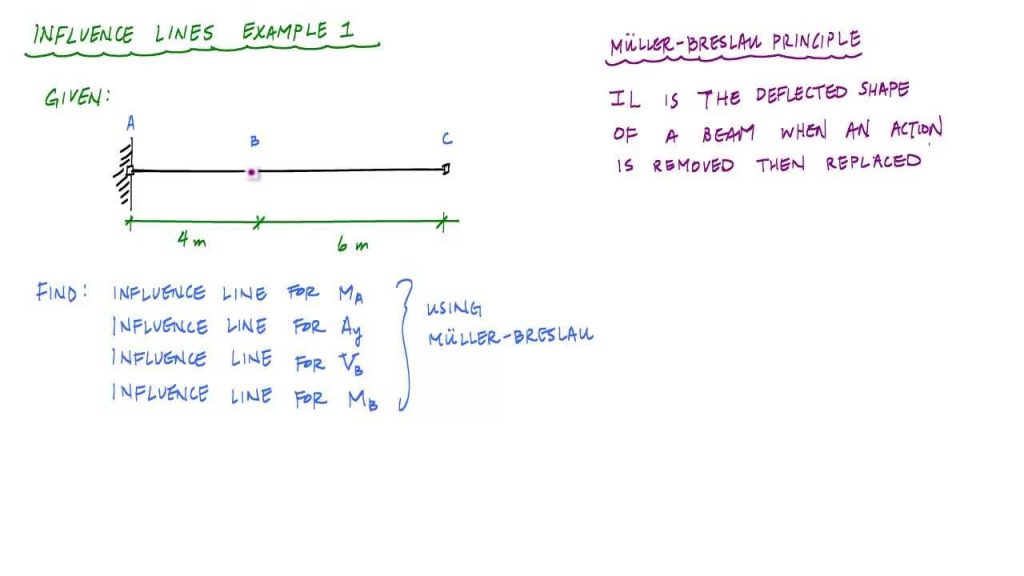 INFLUENCE LINES EXAMPLE 1
GIVEN:
A
B
C
4 m
6 m
FIND: INFLUENCE LINE FOR MA
INFLUENCE LINE FOR Ay
INFLUENCE LINE FOR VB
INFLUENCE LINE FOR MB
USING
MÜLLER-BRESLAU
MÜLLER-BRESLAU PRINCIPLE
IL IS THE DEFLECTED SHAPE
OF A BEAM WHEN AN ACTION
IS REMOVED THEN REPLACED